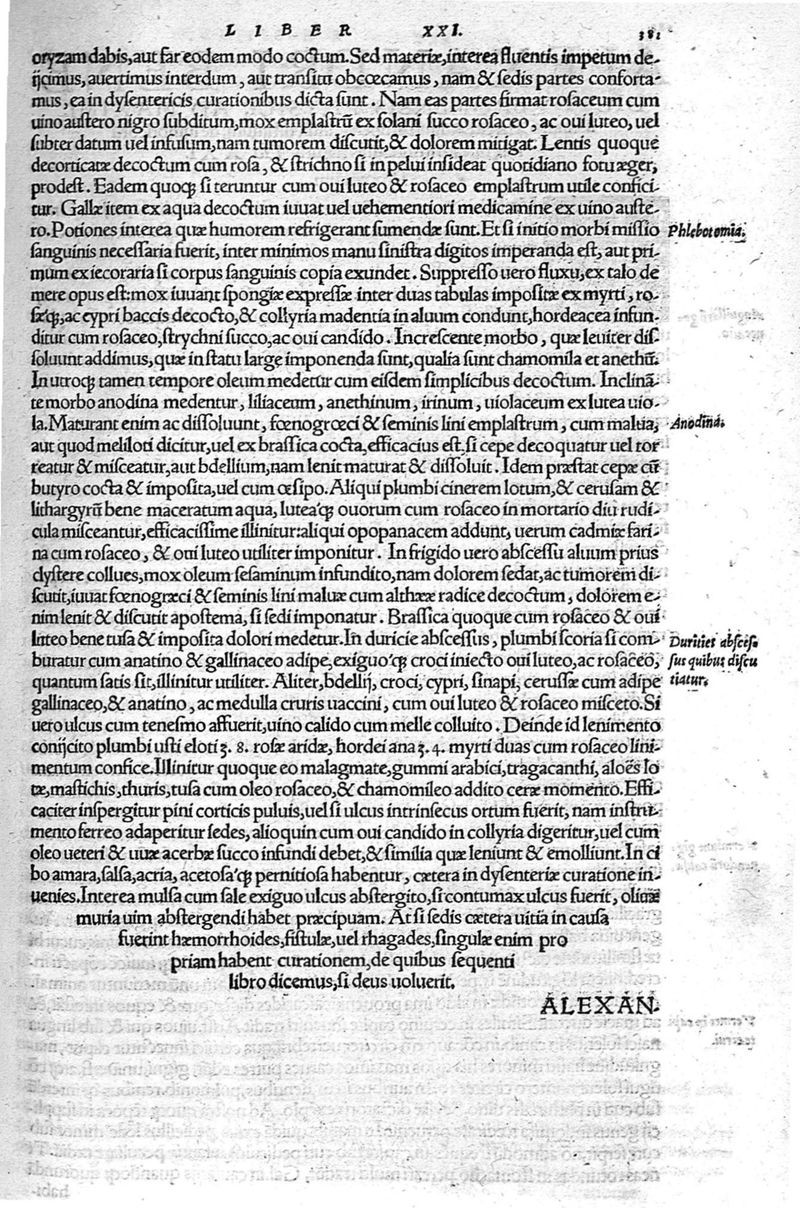 LIBER XXI. 381
oryzam dabis, aut far eodem modo coctum. Sed materiæ, interea fluentis impetum de-
ijcimus, auertimus interdum, aut transitu obcœcamus, nam & sedis partes conforta-
mus, ea in dysentericis curationibus dicta sunt. Nam eas partes firmat rosaceum cum
uino austero nigro subditum, mox emplastrũ ex solani succo rosaceo, ac oui luteo, uel
subter datum uel infusum, nam tumorem discutit, & dolorem mitigat. Lentis quoque
decorticatæ decoctum cum rosa, & strichno si in pelui insideat quotidiano fotu æger,
prodest. Eadem quoqꝫ si teruntur cum oui luteo & rosaceo emplastrum utile confici-
tur. Gallæ item ex aqua decoctum iuuat uel uehementiori medicamine ex uino auste-
ro. Potiones interea quæ humorem refrigerant sumendæ sunt. Et si initio morbi missio
Phlebotomia.
sanguinis necessaria fuerit, inter minimos manu sinistra digitos imperanda est, aut pri-
mum ex iecoraria si corpus sanguinis copia exundet. Suppresso uero fluxu, ex talo de
mere opus est: mox iuuant spongiæ expressæ inter duas tabulas impositæ ex myrti, ro-
sæqꝫ, ac cypri baccis decocto, & collyria madentia in aluum condunt, hordeacea infun-
ditur cum rosaceo, strychni succo, ac oui candido. Increscente morbo, quæ leuiter dis-
soluunt addimus, quæ in statu large imponenda sunt, qualia sunt chamomila et anethũ.
In utroqꝫ tamen tempore oleum medetur cum eisdem simplicibus decoctum. Inclinã-
te morbo anodina medentur, liliaceum, anethinum, irinum, uiolaceum ex lutea uio-
la. Maturant enim ac dissoluunt, fœnogrœci & seminis lini emplastrum, cum malua,
Anodina.
aut quod meliloti dicitur, uel ex brassica cocta, efficacius est, si cepe decoquatur uel tor
reatur & misceatur, aut bdellium, nam lenit maturat & dissoluit. Idem præstat cepæ cũ
butyro cocta & imposita, uel cum œsipo. Aliqui plumbi cinerem lotum, & cerusam &
lithargyrũ bene maceratum aqua, lutea'qꝫ ouorum cum rosaceo in mortario diu rudi-
cula misceantur, efficacissime illinitur: aliqui opopanacem addunt, uerum cadmiæ fari-
na cum rosaceo, & oui luteo utiliter imponitur. In frigido uero abscessu aluum prius
clystere collues, mox oleum sesaminum infundito, nam dolorem sedat, ac tumorem di-
scutit, iuuat fœnogræci & seminis lini maluæ cum althææ radice decoctum, dolorem e-
nim lenit & discutit apostema, si sedi imponatur. Brassica quoque cum rosaceo & oui
luteo bene tusa & imposita dolori medetur. In duricie abscessus, plumbi scoria si com-
Durities absces-
buratur cum anatino & gallinaceo adipe, exiguo'qꝫ croci iniecto oui luteo, ac rosaceo,
sus quibus discu
quantum satis sit, illinitur utiliter. Aliter, bdellij, croci, cypri, sinapi, cerussæ cum adipe
tiatur.
gallinaceo, & anatino, ac medulla cruris uaccini, cum oui luteo & rosaceo misceto. Si
uero ulcus cum tenesmo affuerit, uino calido cum melle colluito. Deinde id lenimento
conijcito plumbi usti eloti ʒ. 8. rosæ aridæ, hordei ana ʒ. 4. myrti duas cum rosaceo lini-
mentum confice. Illinitur quoque eo malagmate, gummi arabici, tragacanthi, aloës lo
tæ, mastichis, thuris, tusa cum oleo rosaceo, & chamomileo addito ceræ momento. Effi-
caciter inspergitur pini corticis puluis, uel si ulcus intrinsecus ortum fuerit, nam instru-
mento ferreo adaperitur sedes, alioquin cum oui candido in collyria digeritur, uel cum
oleo ueteri & uuæ acerbæ succo infundi debet, & similia quæ leniunt & emolliunt. In ci
bo amara, salsa, acria, acetosa'qꝫ pernitiosa habentur, cætera in dysenteriæ curatione in-
uenies. Interea mulsa cum sale exiguo ulcus abstergito, si contumax ulcus fuerit, oliuæ
muria uim abstergendi habet præcipuam. At si sedis cætera uitia in causa
fuerint hæmorrhoides, fistulæ, uel rhagades, singulæ enim pro
priam habent curationem, de quibus sequenti
libro dicemus, si deus uoluerit.
ALEXAN-